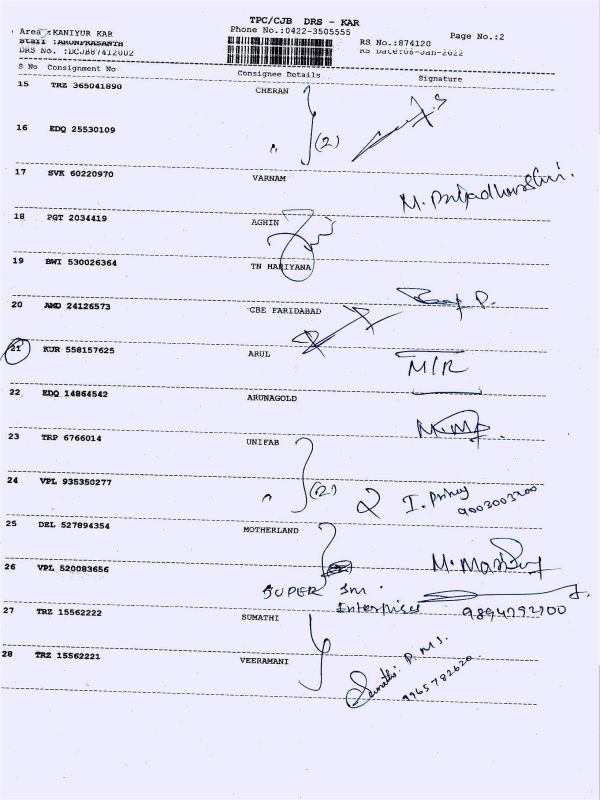 TPC/CJB DRS - KAR
Area :KANIYUR KAR Phone No.:0422-3505555 Page No.:2
Staff :ARUNPRASANTH RS No.:874120
DRS No. :DCJB87412002 RS Date:06-Jan-2022
S No Consignment No Consignee Details Signature
15 TRZ 365041890 CHERAN
16 EDQ 25530109 (2)
17 SVK 60220970 VARNAM
18 PGT 2034419 AGHIN
19 BWI 530026364 TN HARIYANA
20 AMD 24126573 CBE FARIDABAD
21 KUR 558157625 ARUL M/R
22 EDQ 14864542 ARUNAGOLD
23 TRP 6766014 UNIFAB
24 VPL 935350277 (2)
25 DEL 527894354 MOTHERLAND
26 VPL 520083656
SUPER Sm
Enterprises 9894792700
27 TRZ 15562222 SUMATHI
28 TRZ 15562221 VEERAMANI
9965782620